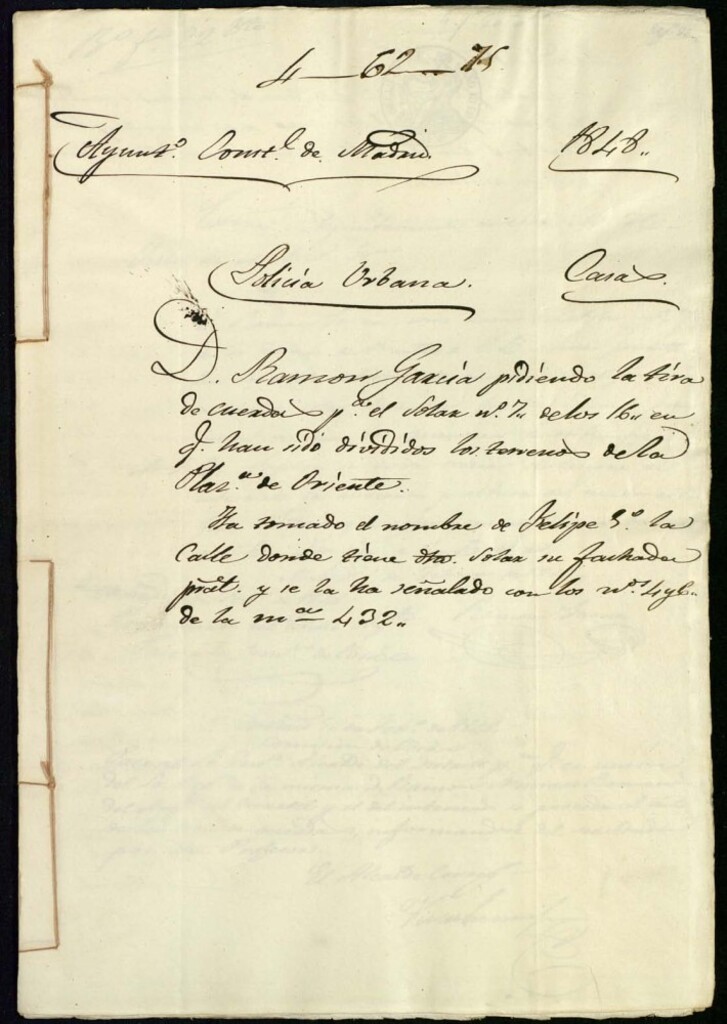 4-62-75
Ayunt.º Const.l de Madrid. 1848..
Policía Urbana. Casas.
D. Ramon García pidiendo la tira
de cuerdas p.ª el Solar n.º 7.. de los 16.. en
q. han sido divididos los terrenos de la
Plaz.ª de Oriente.
Ha tomado el nombre de Felipe 5.º la
Calle donde tiene dho. Solar su fachada
pral. y se la ha señalado con los n.os 4 y 6..
de la m.ª 432..